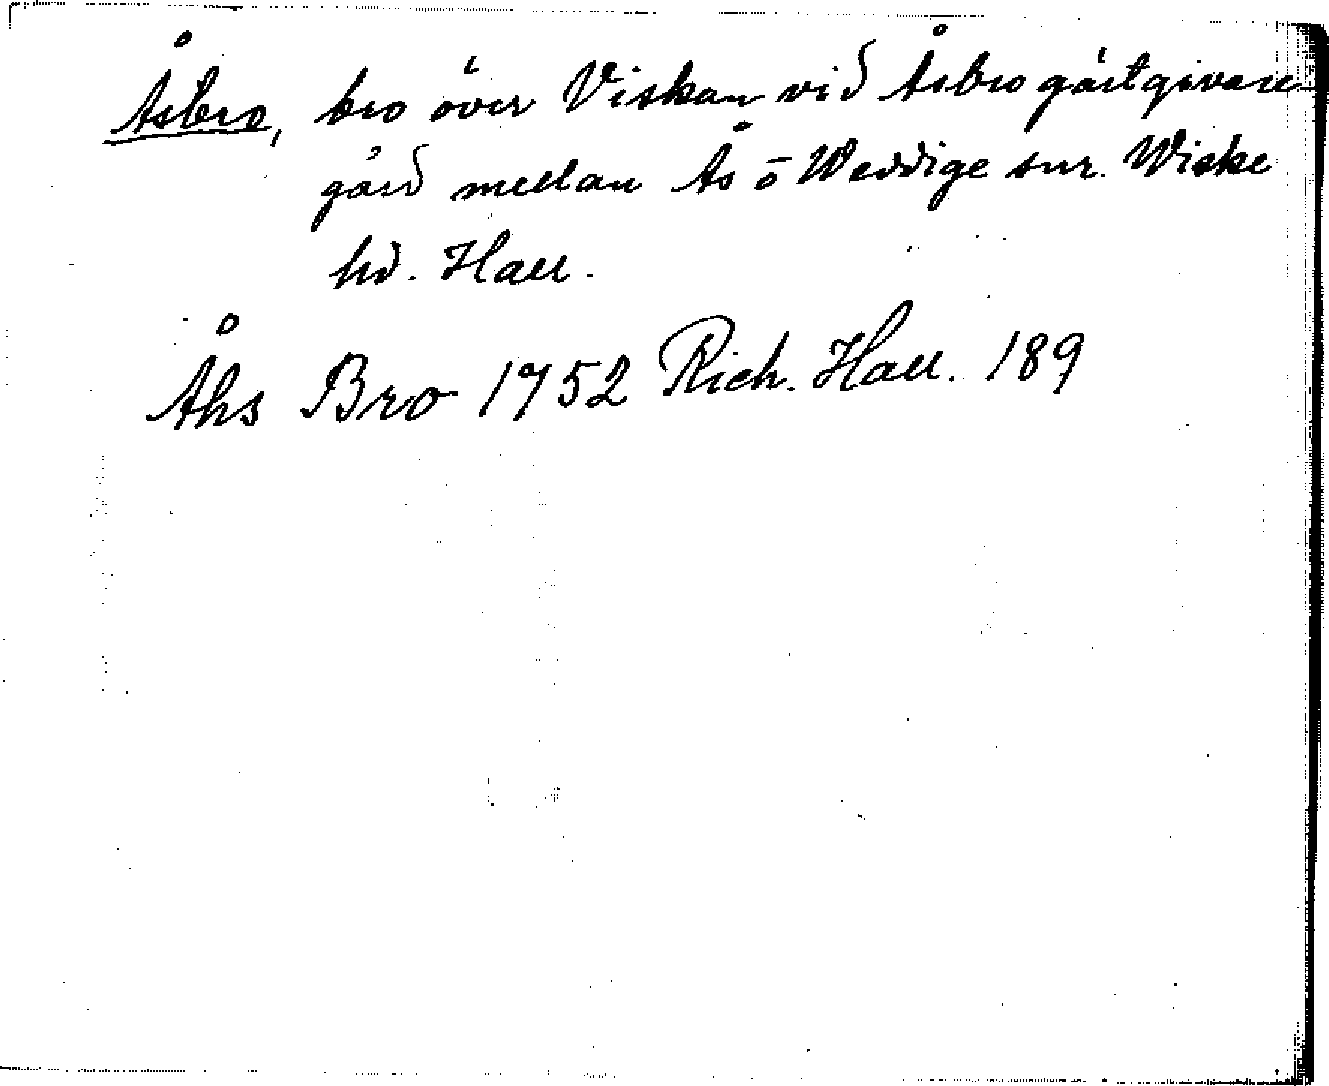 Åsbro, bro över Viskan vid Åsbro gästgivare
gård mellan Ås ō Weddige snr. Wiske
hd. Hall.
Åhs Bro 1752 Rich. Hall. 189